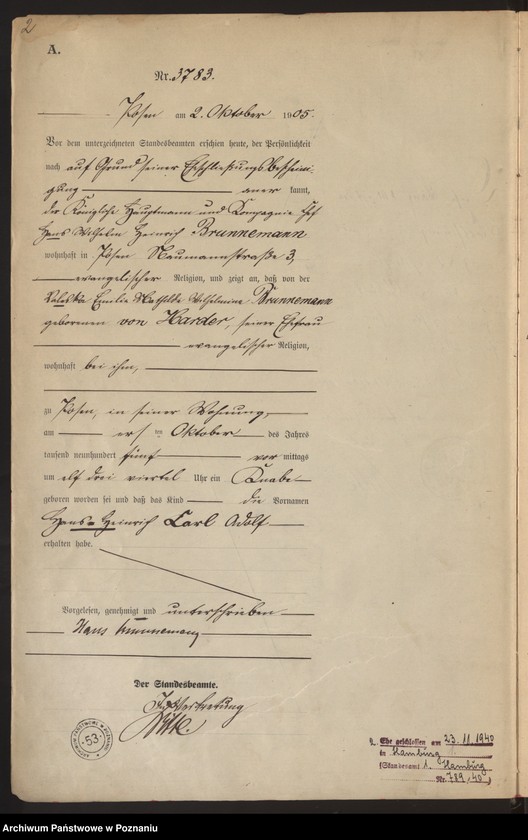 2
A.
Nr. 3783.
Posen am 2. Oktober 1905.
Vor dem unterzeichneten Standesbeamten erschien heute, der Persönlichkeit
nach auf Grund seiner Eheschließungsbescheini-
gung aner kannt,
der Königliche Hauptmann und Kompagnie Chef
Hans Wilhelm Heinrich Brunnemann
wohnhaft in Posen Naumannstraße 3,
evangelischer Religion, und zeigte an, daß von der
Valeska Emilie Mathilde Wilhelmine Brunnemann
geborenen von Harder, seiner Ehefrau
evangelischer Religion,
wohnhaft bei ihm,
zu Posen, in seiner Wohnung,
am ersten Oktober des Jahres
tausend neunhundert fünf vor mittags
um elf drei viertel Uhr ein Knabe
geboren worden sei und daß das Kind die Vornamen
Hans-Heinrich Carl Adolf
erhalten habe.
Vorgelesen, genehmigt und unterschrieben
Hans Brunnemann
Der Standesbeamte.
In Vertretung
ARCHIWUM PAŃSTWOWE W POZNANIU
53
1. Ehe geschlossen am 23.11.1940
in Hamburg
(Standesamt 1. Hamburg
Nr. 789/40)
Archiwum Państwowe w Poznaniu